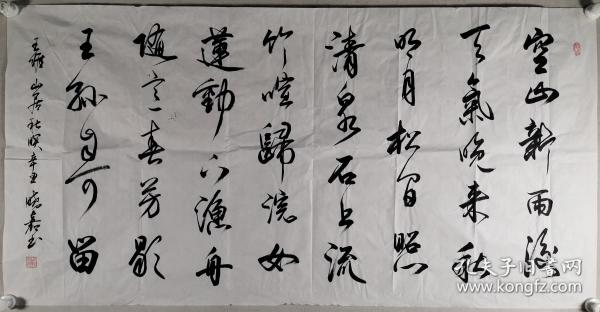 空山新雨後
天氣晚来秋
明月松间照
清泉石上流
竹喧歸浣女
蓮動下漁舟
随意春芳歇
王孫自可留
王維山居秋暝辛丑
孔夫子旧书网
www.kongfz.com